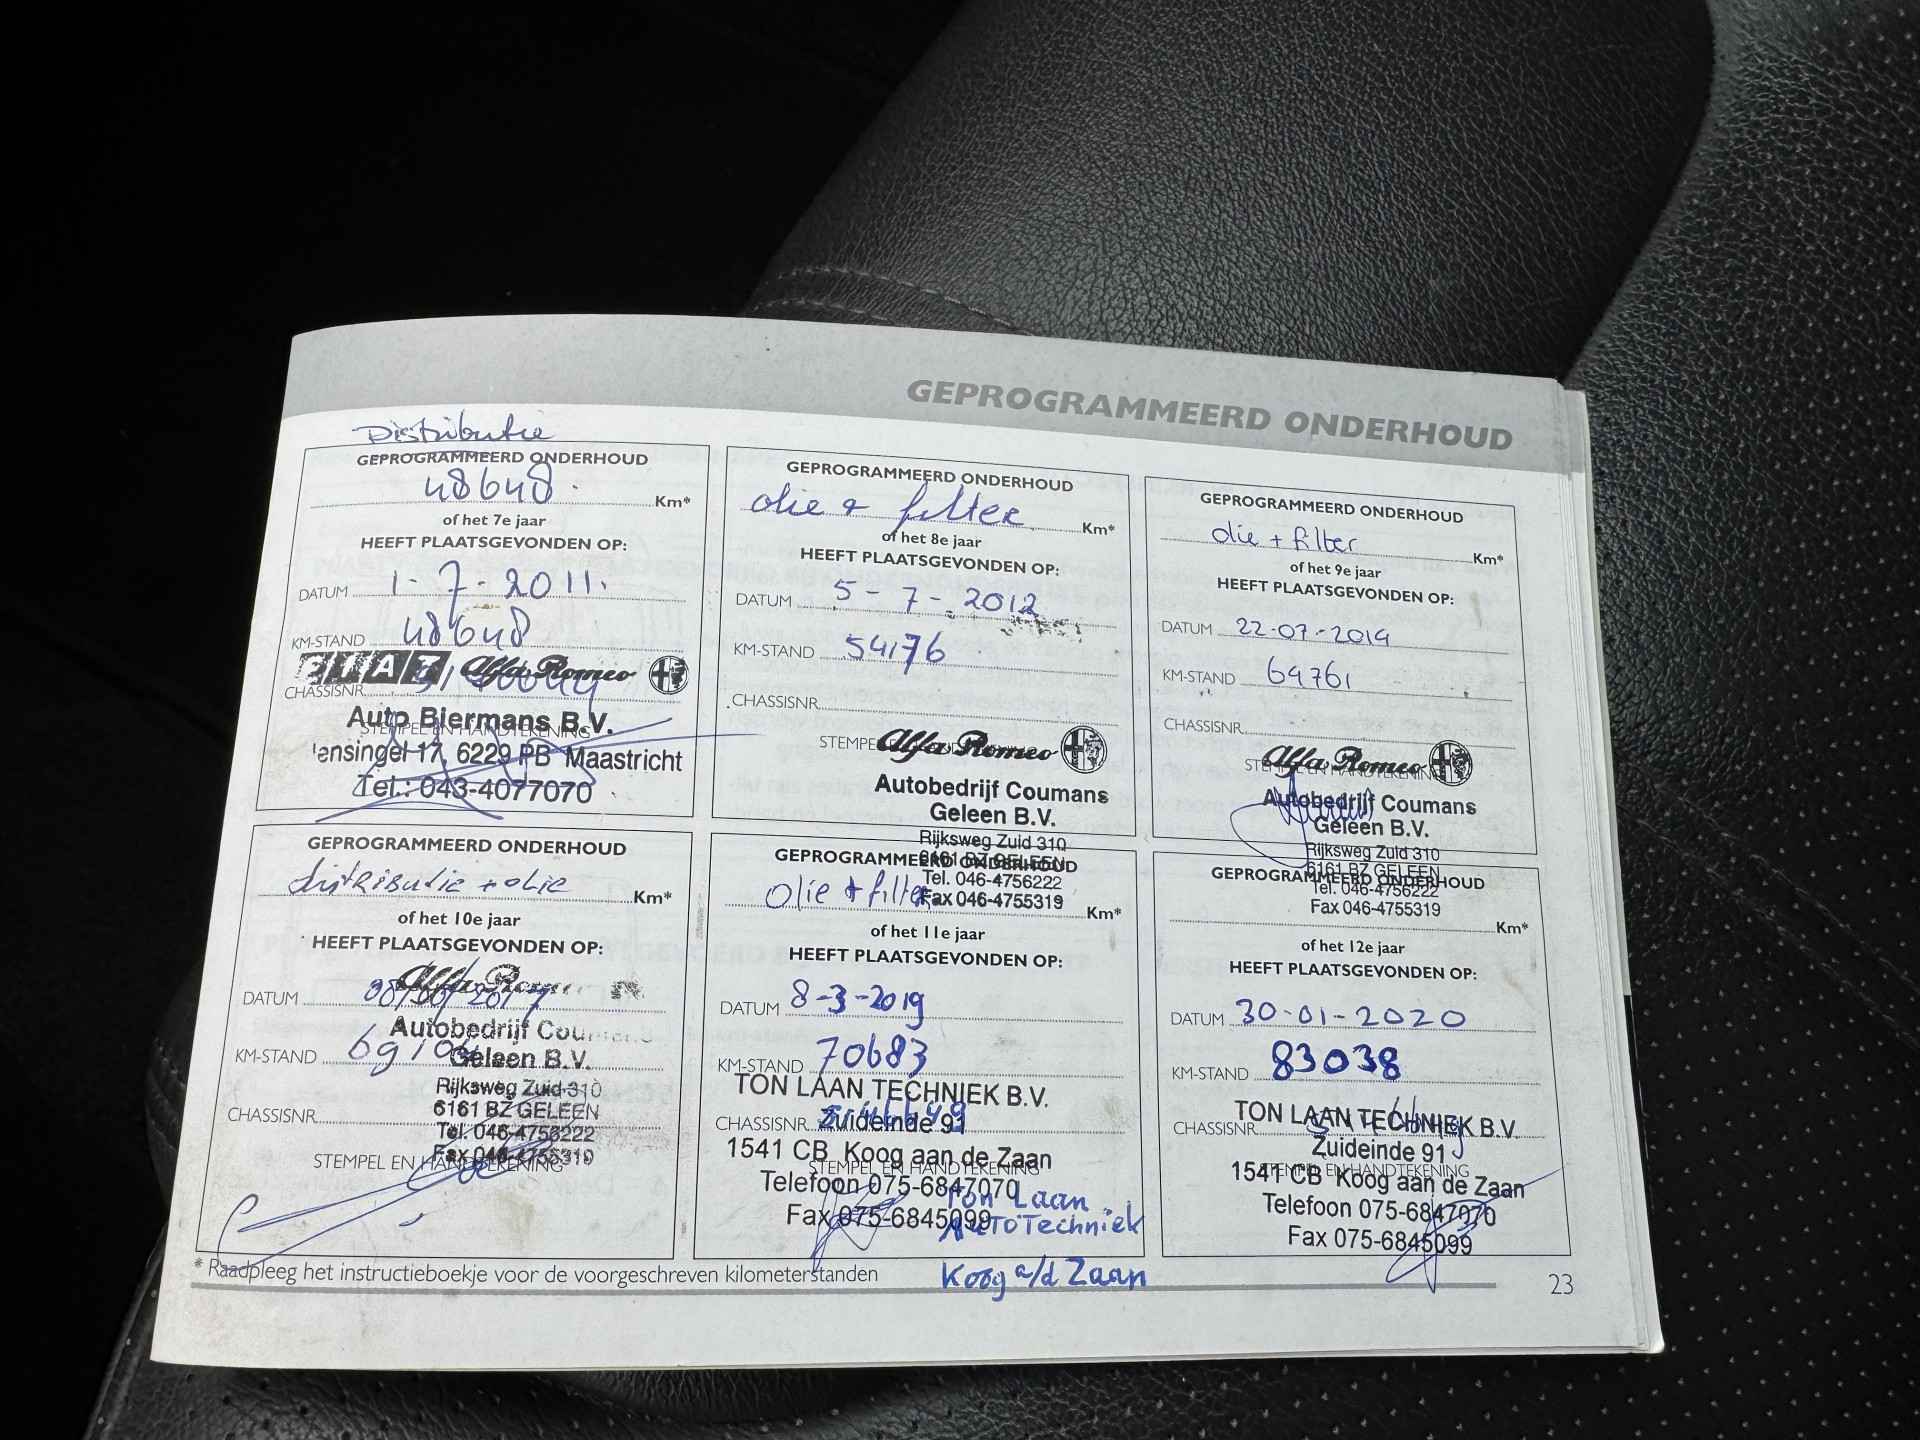 GEPROGRAMMEERD ONDERHOUD
Distributie
GEPROGRAMMEERD ONDERHOUD
48648 Km*
of het 7e jaar
HEEFT PLAATSGEVONDEN OP:
DATUM 1-7-2011.
KM-STAND 48648
FIAT Alfa Romeo
CHASSISNR.
Auto Biermans B.V.
STEMPEL EN HANDTEKENING
ensingel 17, 6229 PB Maastricht
Tel.: 043-4077070
GEPROGRAMMEERD ONDERHOUD
olie + filter Km*
of het 8e jaar
HEEFT PLAATSGEVONDEN OP:
DATUM 5-7-2012
KM-STAND 54176
CHASSISNR.
STEMPEL Alfa Romeo
Autobedrijf Coumans
Geleen B.V.
Rijksweg Zuid 310
6161 BZ GELEEN
Tel. 046-4756222
Fax 046-4755319
GEPROGRAMMEERD ONDERHOUD
olie + filter Km*
of het 9e jaar
HEEFT PLAATSGEVONDEN OP:
DATUM 22-07-2014
KM-STAND 64761
CHASSISNR.
Alfa Romeo
STEMPEL EN HANDTEKENING
Autobedrijf Coumans
Geleen B.V.
Rijksweg Zuid 310
6161 BZ GELEEN
Tel. 046-4756222
Fax 046-4755319
GEPROGRAMMEERD ONDERHOUD
distributie + olie Km*
of het 10e jaar
HEEFT PLAATSGEVONDEN OP:
Alfa Romeo
DATUM
Autobedrijf Coumans
KM-STAND
Geleen B.V.
Rijksweg Zuid 310
CHASSISNR. 6161 BZ GELEEN
Tel. 046-4756222
Fax 046-4755319
STEMPEL EN HANDTEKENING
GEPROGRAMMEERD ONDERHOUD
olie + filter Km*
of het 11e jaar
HEEFT PLAATSGEVONDEN OP:
DATUM 8-3-2019
KM-STAND 70683
TON LAAN TECHNIEK B.V.
CHASSISNR. Zuideinde 91
1541 CB Koog aan de Zaan
STEMPEL EN HANDTEKENING
Telefoon 075-6847070
Fax 075-6845099
Ton Laan
AutoTechniek
Koog a/d Zaan
GEPROGRAMMEERD ONDERHOUD
Km*
of het 12e jaar
HEEFT PLAATSGEVONDEN OP:
DATUM 30-01-2020
KM-STAND 83038
TON LAAN TECHNIEK B.V.
CHASSISNR.
Zuideinde 91
STEMPEL EN HANDTEKENING
1541 CB Koog aan de Zaan
Telefoon 075-6847070
Fax 075-6845099
* Raadpleeg het instructieboekje voor de voorgeschreven kilometerstanden
23